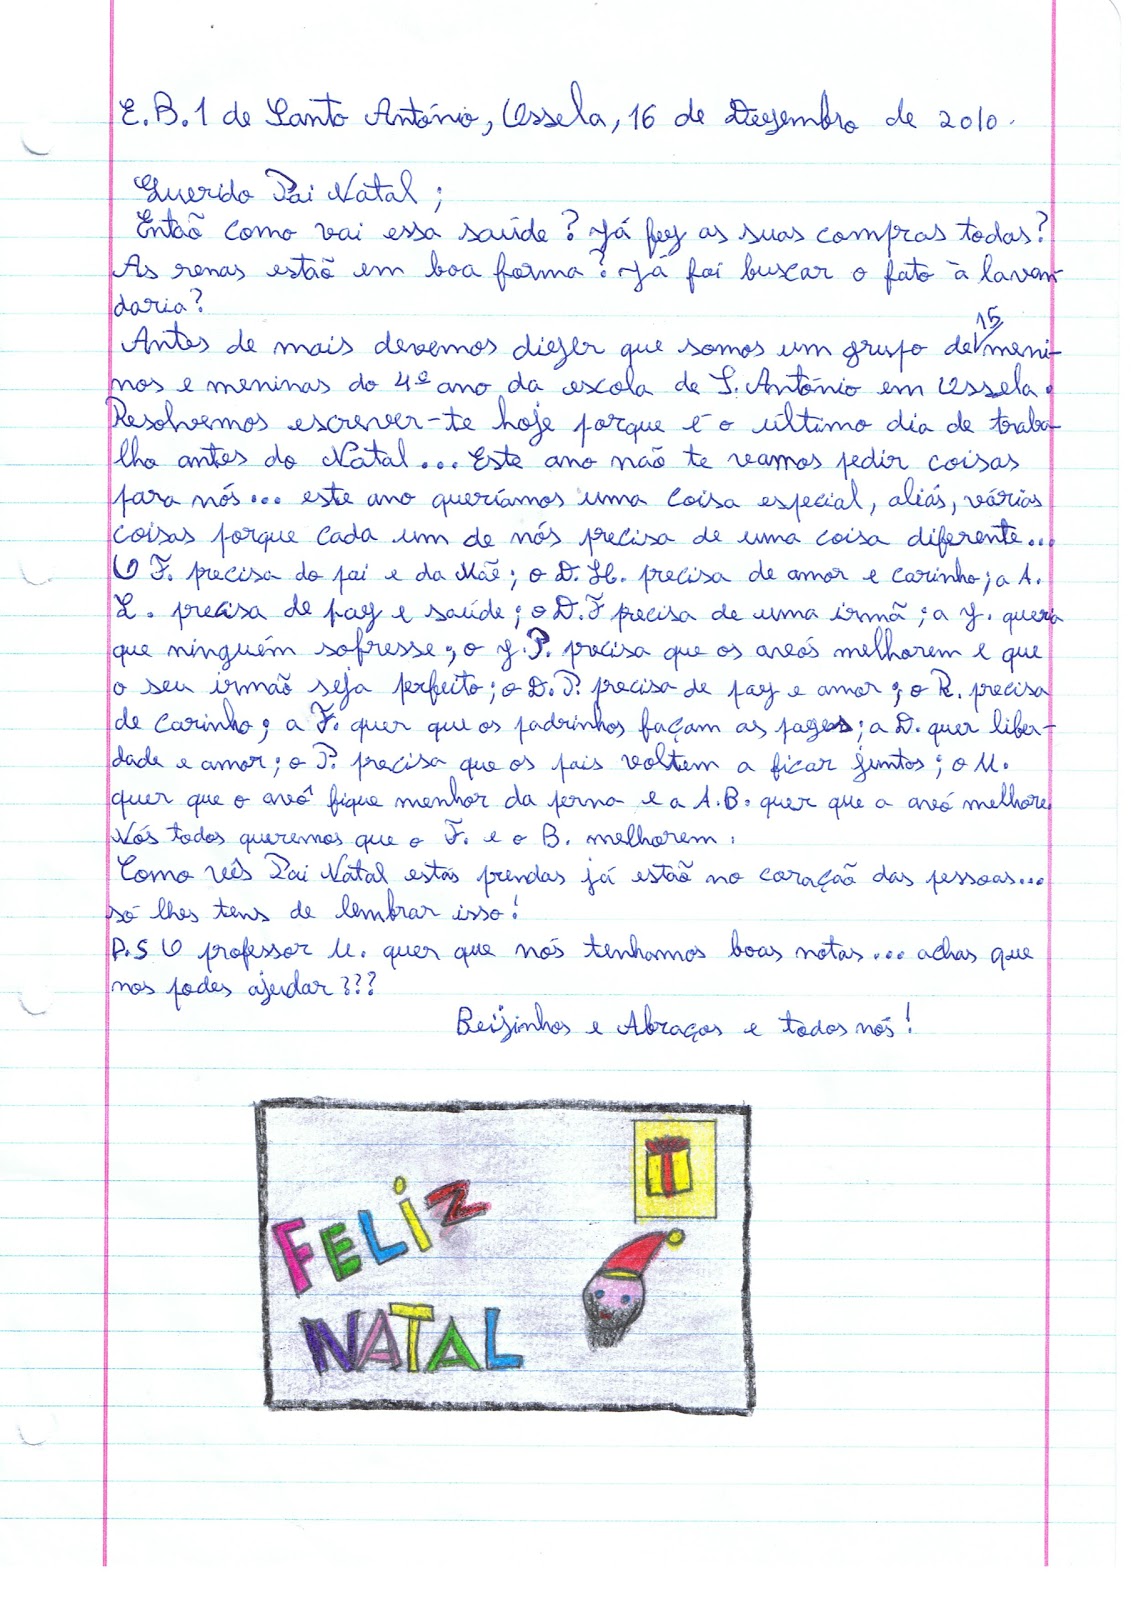 E.B.1 de Santo António, Ossela, 16 de Dezembro de 2010.
Querido Pai Natal;
Então como vai essa saúde? Já fez as suas compras todas?
As renas estão em boa forma? Já foi buscar o fato à lavan-
daria?
15
Antes de mais devemos dizer que somos um grupo de meni-
nos e meninas do 4º ano da escola de S. António em Ossela.
Resolvemos escrever-te hoje porque é o último dia de traba-
lho antes do Natal... Este ano não te vamos pedir coisas
para nós... este ano queríamos uma coisa especial, aliás, várias
coisas porque cada um de nós precisa de uma coisa diferente...
O F. precisa do pai e da Mãe; o D. H. precisa de amor e carinho; a A.
L. precisa de paz e saúde; o D.F precisa de uma irmã; a J. queria
que ninguém sofresse; o J.P. precisa que os avós melhorem e que
o seu irmão seja perfeito; o D.P. precisa de paz e amor; o R. precisa
de carinho; a F. quer que os padrinhos façam as pazes; a D. quer liber-
dade e amor; o P. precisa que os pais voltem a ficar juntos; o M.
quer que o avô fique menhor da perna e a A.B. quer que a avó melhore.
Nós todos queremos que o F. e o B. melhorem.
Como vês Pai Natal estas prendas já estão no coração das pessoas...
só lhes tens de lembrar isso!
P.S O professor M. quer que nós tenhamos boas notas... achas que
nos podes ajudar???
Beijinhos e Abraços e todos nós!
FELIZ
NATAL